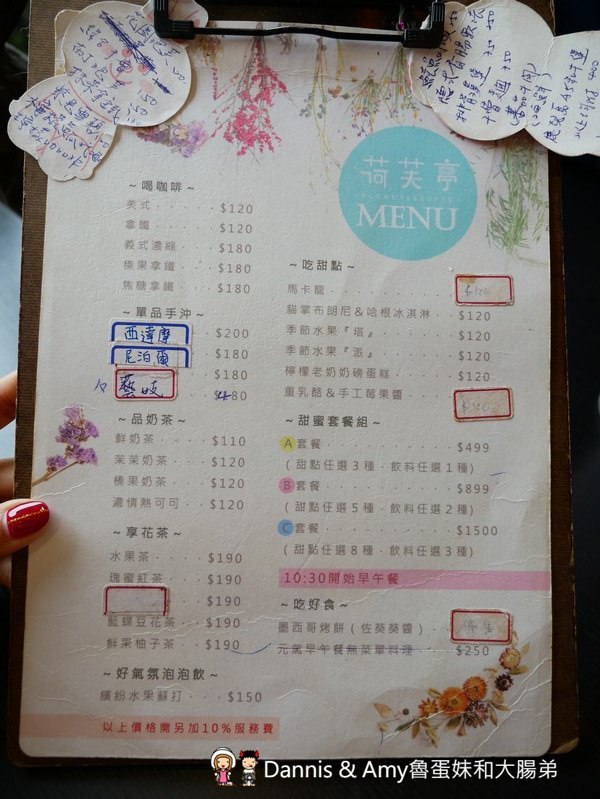 荷芙亭
MENU
~喝咖啡~
美式 $120
拿鐵 $120
義式濃縮 $180
榛果拿鐵 $180
焦糖拿鐵 $180
~單品手沖~
西達摩 $200
尼泊爾 $180
藝妓 $180
~品奶茶~
鮮奶茶 $110
茉茉奶茶 $120
榛果奶茶 $120
濃情熱可可 $120
~享花茶~
水果茶 $190
瑰蜜紅茶 $190
$190
藍蝶豆花茶 $190
鮮果柚子茶 $190
~好氣氛泡泡飲~
繽紛水果蘇打 $150
以上價格需另加10%服務費
~吃甜點~
馬卡龍 $120
貓掌布朗尼&哈根冰淇淋 $120
季節水果『塔』 $120
季節水果『派』 $120
檸檬老奶奶磅蛋糕 $120
重乳酪&手工莓果醬
~甜蜜套餐組~
A套餐 $499
(甜點任選3種，飲料任選1種)
B套餐 $899
(甜點任選5種，飲料任選2種)
C套餐 $1500
(甜點任選8種，飲料任選3種)
10:30開始早午餐
~吃好食~
墨西哥烤餅(佐葵葵醬)
元氣早午餐無菜單料理 $250
Dannis & Amy魯蛋妹和大腸弟